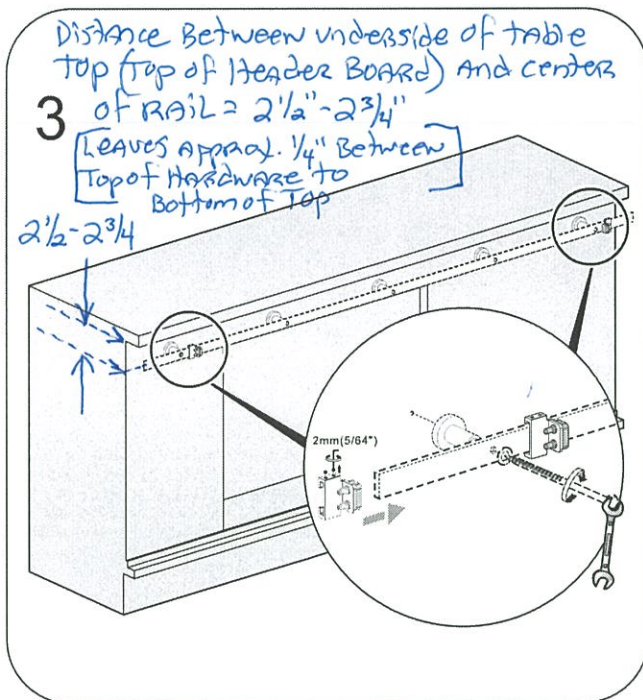 Distance Between underside of table
Top (Top of Header Board) And center
3 of RAIL = 2 1/2" - 2 3/4"
[Leaves Approx. 1/4" Between
Top of Hardware to
Bottom of Top]
2 1/2 - 2 3/4
2mm(5/64")